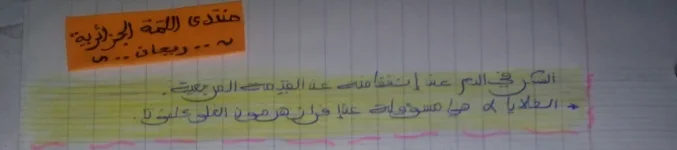 منتدى اللمة الجزائرية
~ .. ريحان .. ~
السكر في الدم عند إنخفاضه عن القيمة المرجعية.
* الخلايا α هي مسؤولة عن إفراز هرمون الغلوكاغون.